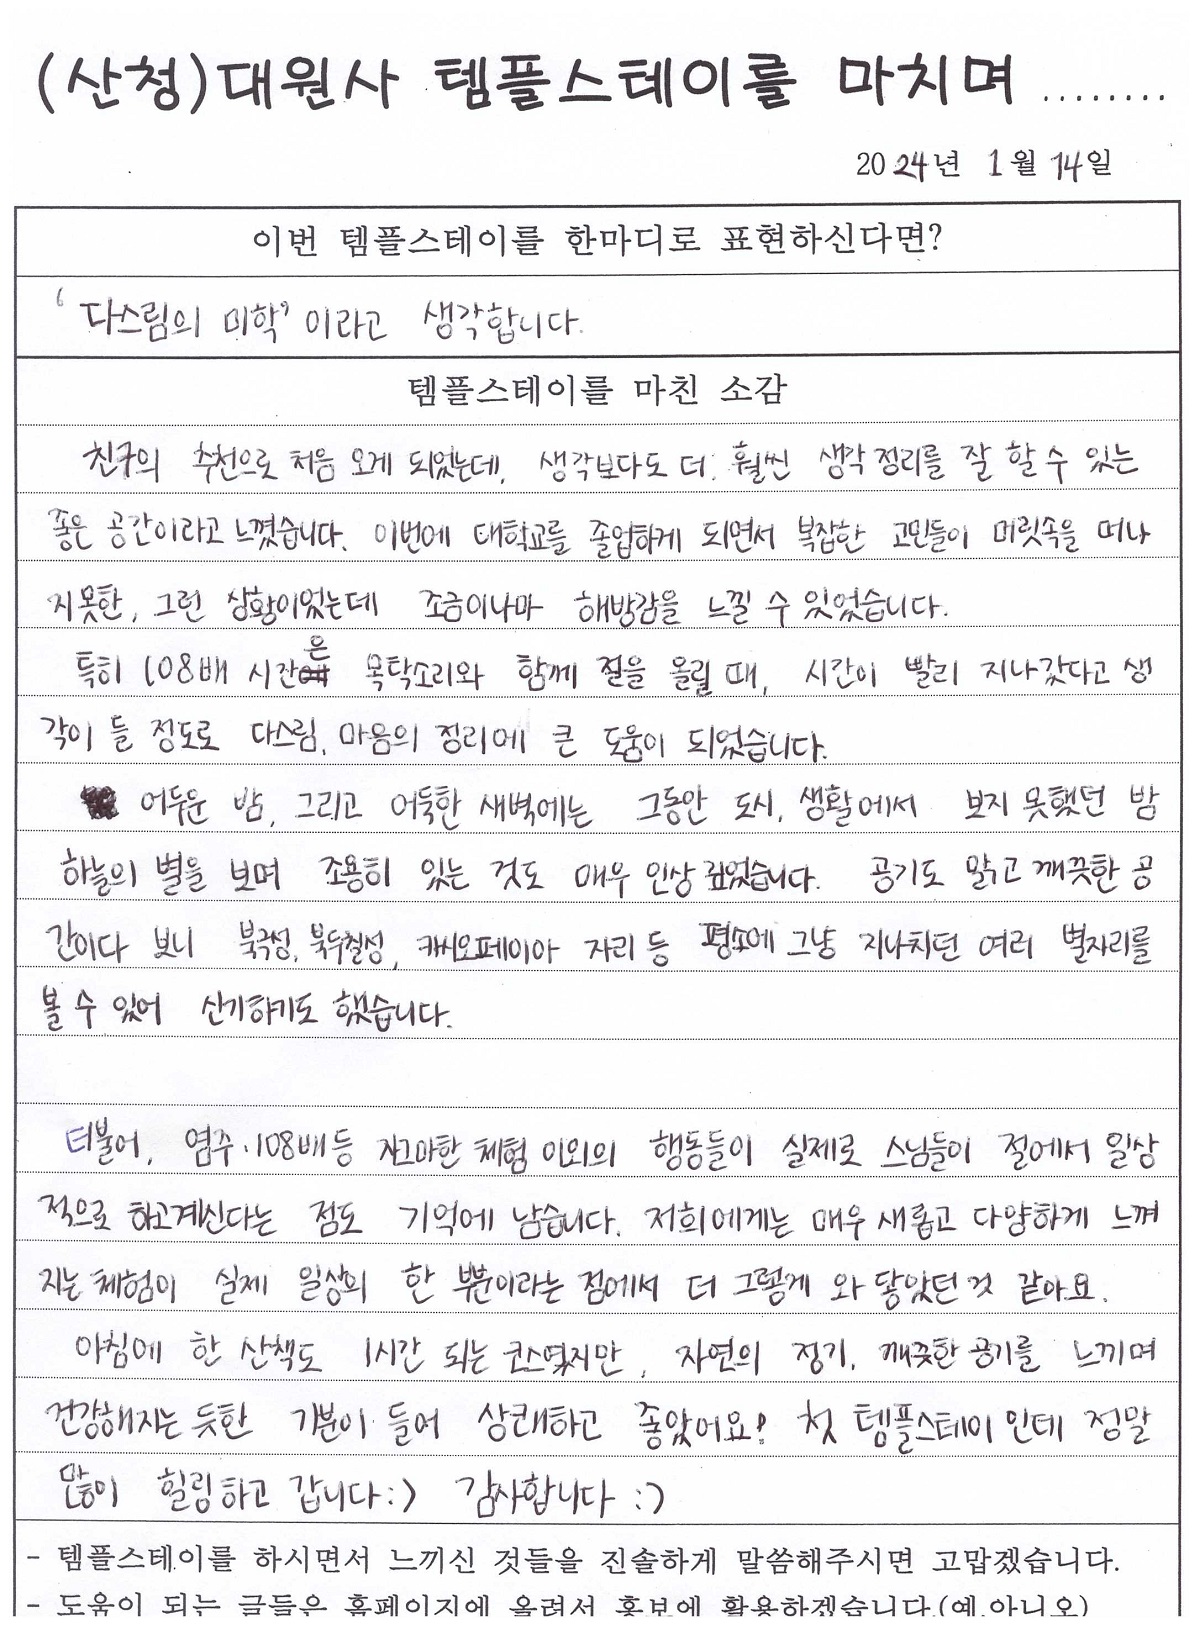 (산청)대원사 템플스테이를 마치며 ........
2024년 1월 14일
이번 템플스테이를 한마디로 표현하신다면?
'다스림의 미학'이라고 생각합니다.
템플스테이를 마친 소감
친구의 추천으로 처음 오게 되었는데, 생각보다도 더 훨씬 생각정리를 잘 할 수 있는
좋은 공간이라고 느꼈습니다. 이번에 대학교를 졸업하게 되면서 복잡한 고민들이 머릿속을 떠나
지못한, 그런 상황이었는데 조금이나마 해방감을 느낄 수 있었습니다.
특히 108배 시간은 목탁소리와 함께 절을 올릴 때, 시간이 빨리 지나갔다고 생
각이 들 정도로 다스림, 마음의 정리에 큰 도움이 되었습니다.
어두운 밤, 그리고 어둑한 새벽에는 그동안 도시, 생활에서 보지 못했던 밤
하늘의 별을 보며 조용히 있는 것도 매우 인상 깊었습니다. 공기도 맑고 깨끗한 공
간이다 보니 북극성, 북두칠성, 캐시오페이아 자리 등 평소에 그냥 지나치던 여러 별자리를
볼 수 있어 신기하기도 했습니다.
더불어, 염주·108배 등 자그마한 체험 이외의 행동들이 실제로 스님들이 절에서 일상
적으로 하고계신다는 점도 기억에 남습니다. 저희에게는 매우 새롭고 다양하게 느껴
지는 체험이 실제 일상의 한 부분이라는 점에서 더 그렇게 와 닿았던 것 같아요.
아침에 한 산책도 1시간 되는 코스였지만, 자연의 정기, 깨끗한 공기를 느끼며
건강해지는 듯한 기분이 들어 상쾌하고 좋았어요! 첫 템플스테이인데 정말
많이 힐링하고 갑니다:) 감사합니다 :)
- 템플스테이를 하시면서 느끼신 것들을 진솔하게 말씀해주시면 고맙겠습니다.
- 도움이 되는 글들은 홈페이지에 올려서 홍보에 활용하겠습니다.(예,아니오)